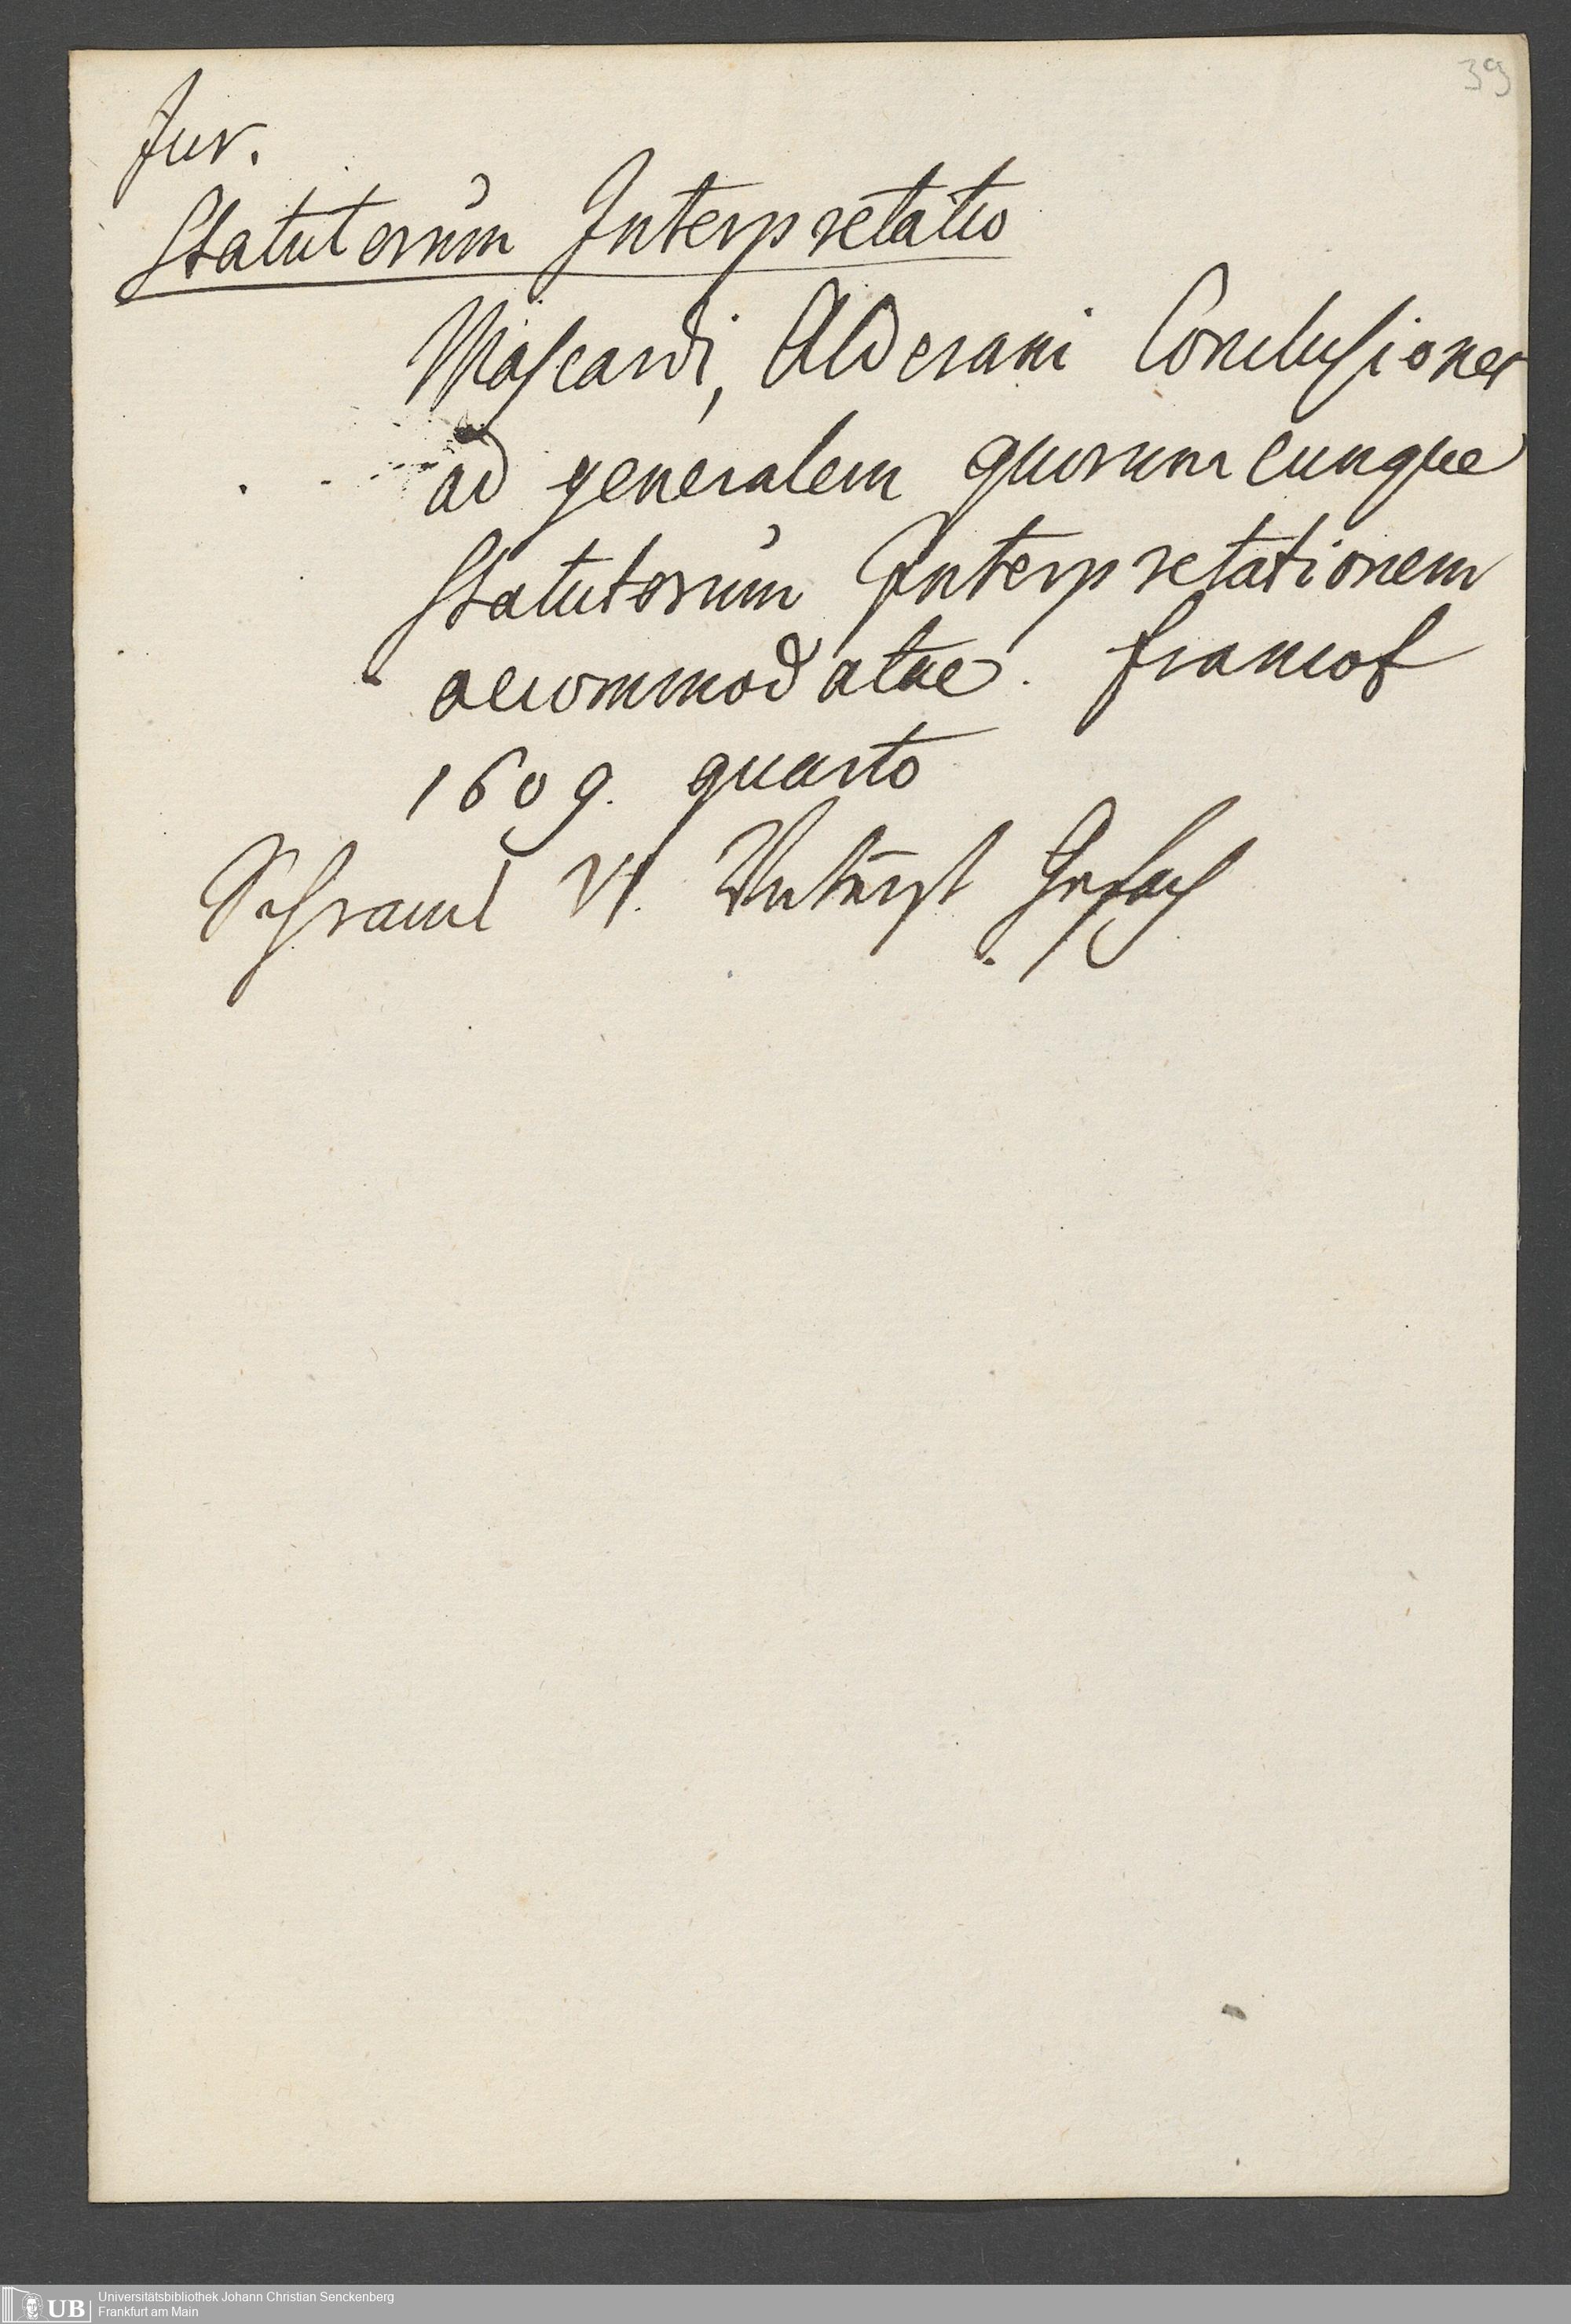 39
Jur.
Statutorum Interpretatio
Mascardi, Alderani Conclusiones
ad generalem quorumcunque
Statutorum Interpretationem
accommodatae. francof
1609. quarto
Schranck VI. Unterst Gefach
UB Universitätsbibliothek Johann Christian Senckenberg
Frankfurt am Main